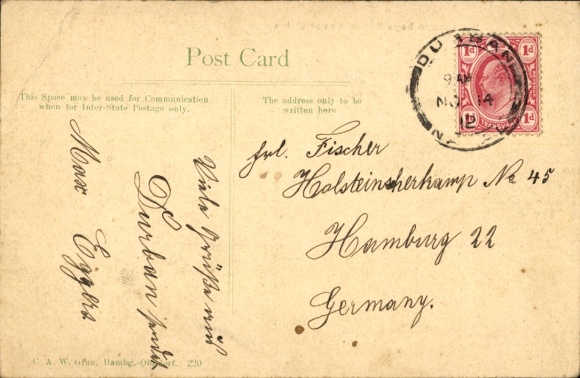 Post Card
This Space may be used for Communication
when for Inter-State Postage only.
The address only to be
written here
DURBAN
9 AM
NO 14
12
1d 1d
1d
Viele Grüße aus
Durban sendet
Max Eggers
Frl. Fischer
Holsteinscherkamp No 45
Hamburg 22
Germany.
C. A. W. Grun, Hambg.-Ohlsdorf. 220